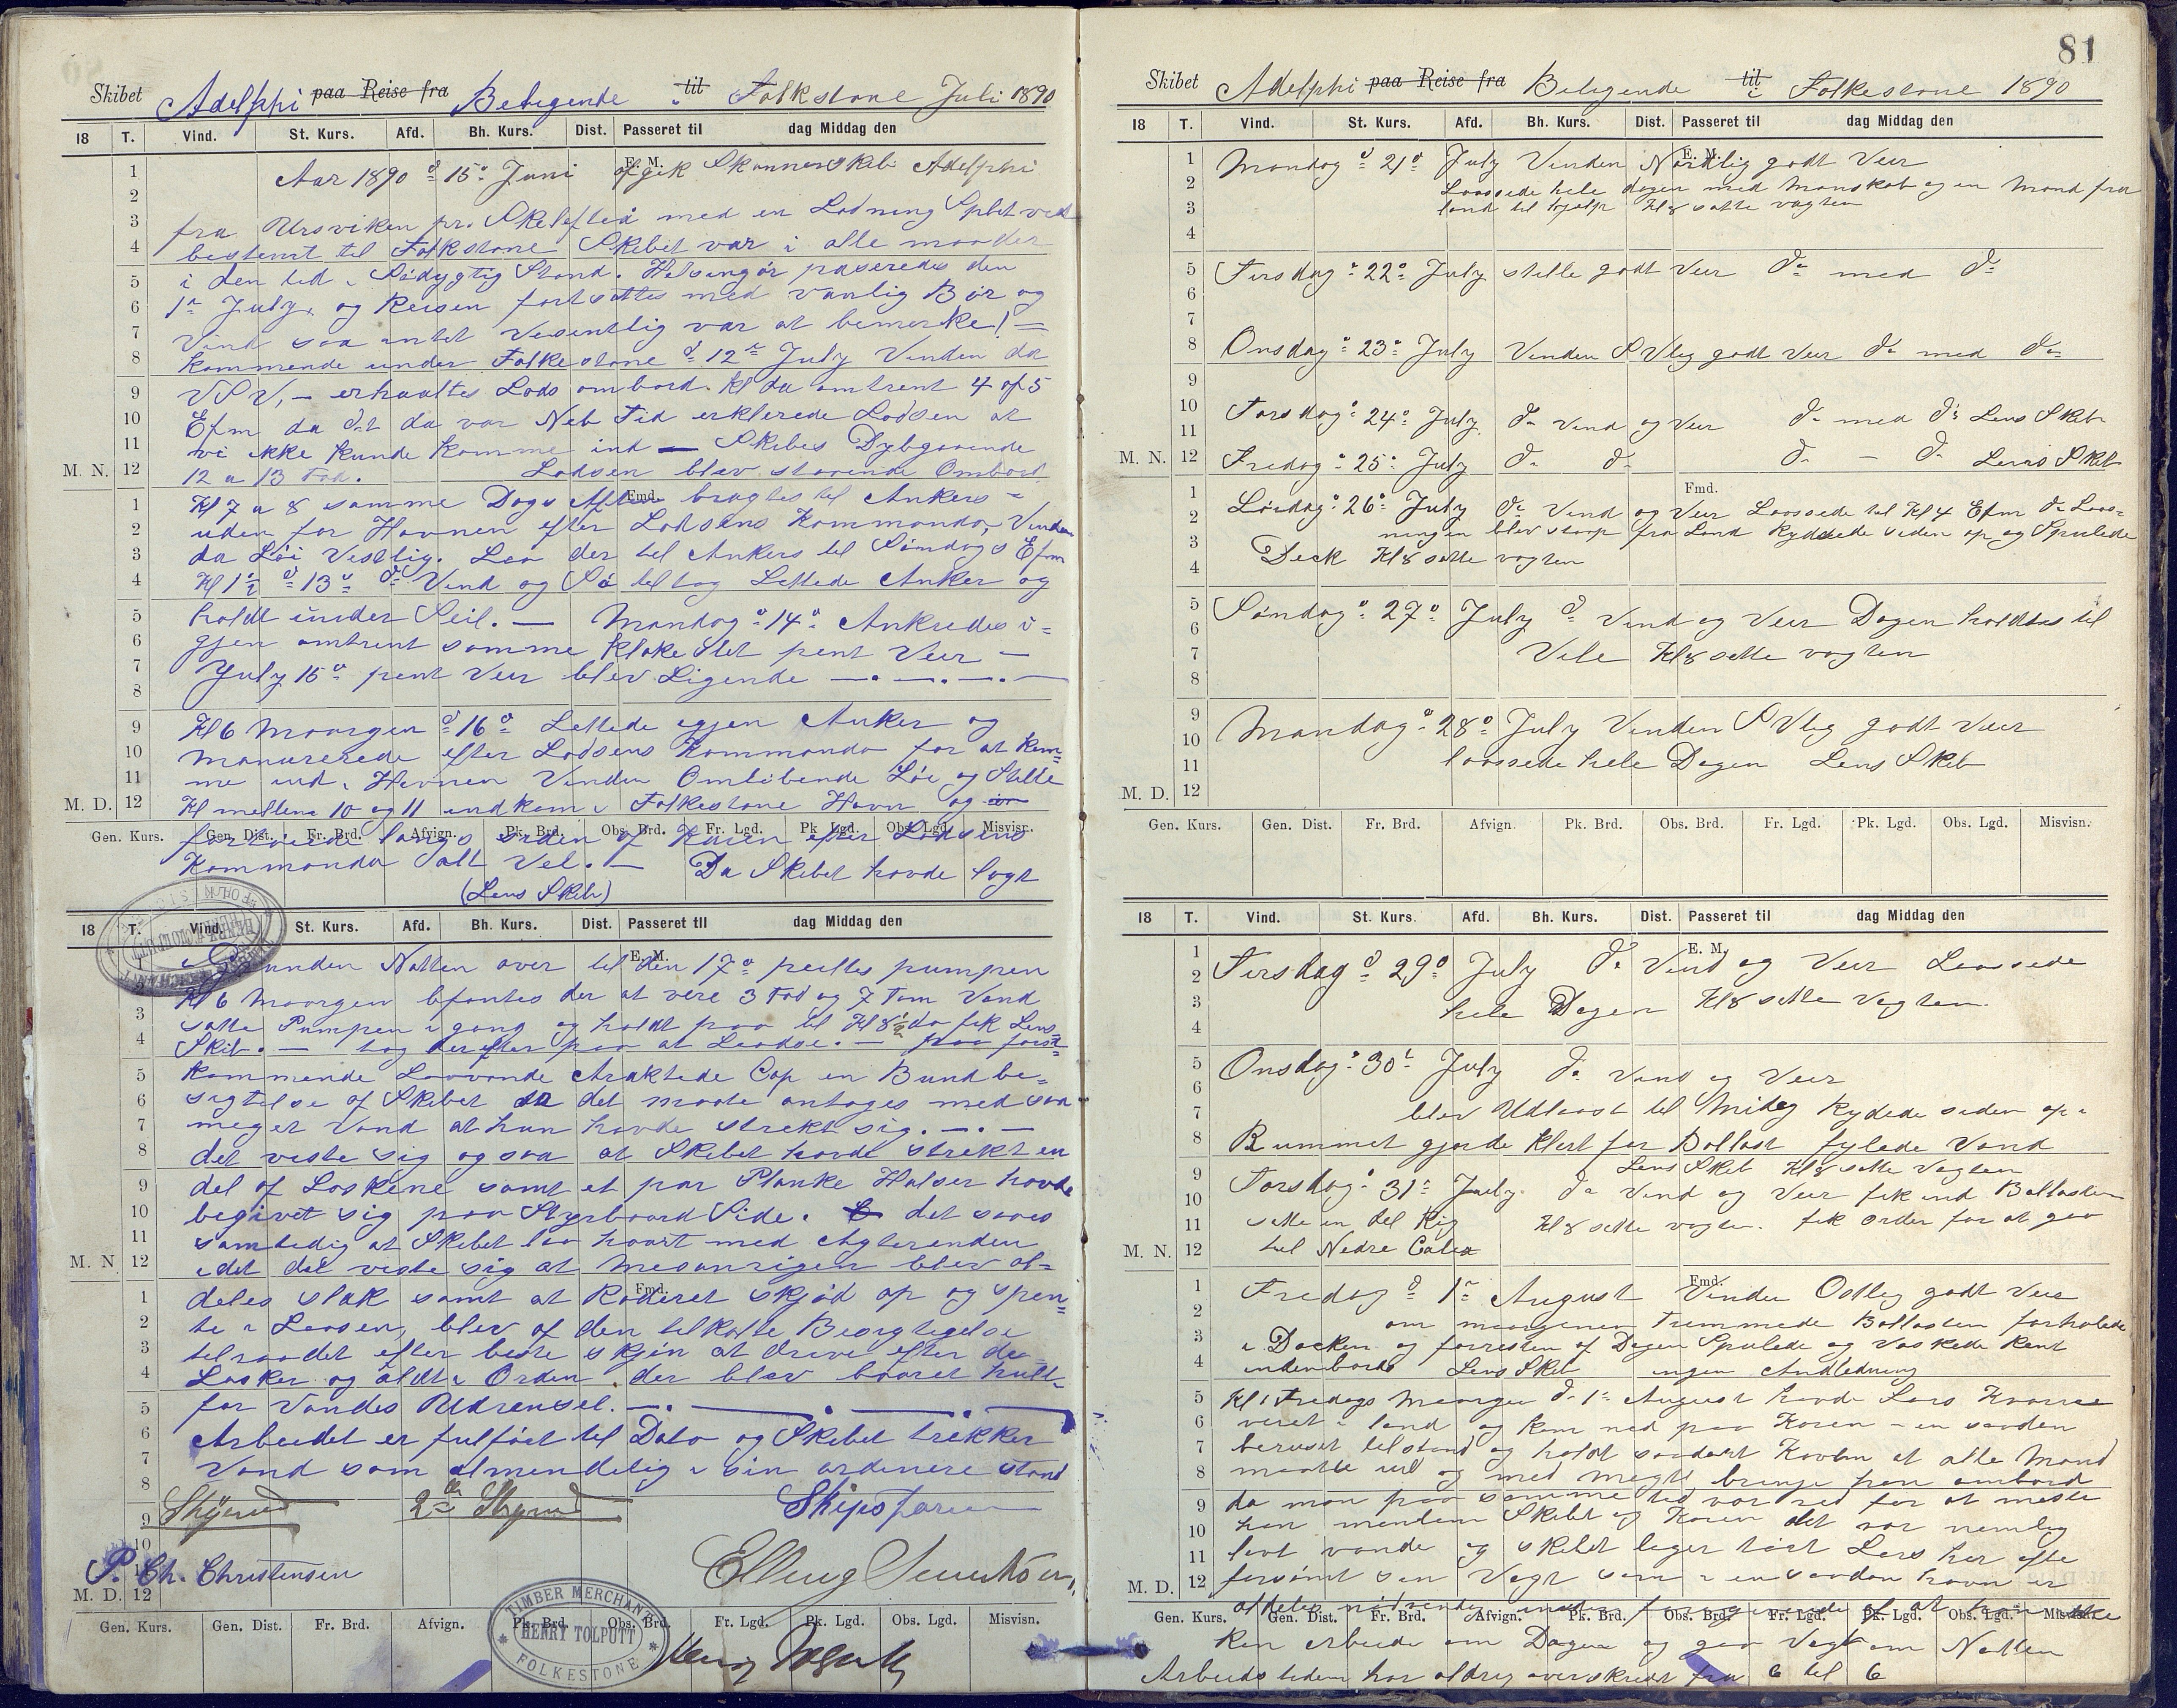 Skibet Adelphi paa Reise fra Beliggende til i Folkstone Juli 1890
18 T. Vind. St. Kurs. Afd. Bh. Kurs. Dist. Passeret til dag Middag den
E. M.
Aar 1890 d 15de Juni afgik Skonnerskib Adelphi
fra Ursviken pr. Skelefteå med en Ladning Splitved
bestemt til Folkstone Skibet var i alle maader
i den tid i Södygtig Stand. Helsingör paseredes den
1ste July, og Reisen fortsattes med vanlig Bör og
Vind saa intet Vesentlig var at bemerke! —
kommende under Folkestone d 12te July Vinden da
VSV, — erhaaltes Lods ombord. Kl da omtrent 4 af 5
Efm da det da var Neb Tid erklerede Lodsen at
vi ikke kunde komme ind — Skibes Dybgaaende
M. N. 12 a 13 Fod. Lodsen blev staaende Ombord.
Fmd.
Kl 7 a 8 samme Dags Aften bragtes til Ankers —
uden for Havnen efter Lodsens Kommando, Vinden
da Löi Vestlig. Laa der til Ankers til Söndags Efm
Kl 1½ d 13de Vind og Sö tiltog Lettede Anker og
holdt under Seil. — Mandag d 14de Ankredes i=
gjen omtrent samme klokeslet pent Veir —
July 15de pent Veir blev Ligende —.—.—.—
Kl 6 Morgen d 16de Lettede igjen Anker og
manurerede efter Lodsens Kommando for at kom=
me ind i Havnen Vinden Omlöbende Löi og Stille
M. D. Kl mellem 10 og 11 indkom i Folkestone Havn og
Gen. Kurs. Gen. Dist. Fr. Brd. Afvign. Pk. Brd. Obs. Brd. Fr. Lgd. Pk. Lgd. Obs. Lgd. Misvisn.
fortöiede langs siden af Kaien efter Lodsens
Kommando alt Vel. — Da Skibet havde lagt
(Lens Skib)
18 T. Vind. St. Kurs. Afd. Bh. Kurs. Dist. Passeret til dag Middag den
E. M.
i Grunden Natten over til den 17de peiltes pumpen
Kl 6 Morgen befantes der at vere 3 Fod og 7 Tom Vand
satte Pumpen i gang og holdt paa til Kl 8½ da fik Lens
Skib. — tog derefter paa at Laadse. — paa först=
kommende Lavvande Araktede Cap en Bundbe=
sigtelse af Skibet da det maate antages med saa
meget Vand at hun havde strekt sig. —.—
det viste sig ogsaa at Skibet havde strekt en
del af Laskene samt et par Planke Halser havde
begivet sig paa Styrbaard Side. det saaes
samtidig at Skibet laa haart med Agterenden
M. N. idet det viste sig at Mesanrigen blev al=
Fmd.
deles slak samt at Roderet skjöd op og spen=
te i Laasen, blev af den tilkalte Besigtigelse
tilraadet efter beste skjön at drive efter de
Lasker og alt i Orden, der blev baaret hult
for Vandes Udrensel. —.—.—.—
Arbeidet er fulfört til Dato og Skibet trekker
Vand som almendelig i sin ordinere stand
Styrmd 2den Styrmd Skipsförer
P. Ch. Christensen
M. D.
TIMBER MERCHANT
HENRY TOLPUTT
FOLKESTONE
Gen. Kurs. Gen. Dist. Fr. Brd. Afvign. Pk. Brd. Obs. Brd. Fr. Lgd. Pk. Lgd. Obs. Lgd. Misvisn.
Henry Tolputt
81
Skibet Adelphi paa Reise fra Beligende til i Folkestone 1890
18 T. Vind. St. Kurs. Afd. Bh. Kurs. Dist. Passeret til dag Middag den
E. M.
Mandag d 21de July Vinden Nordlig godt Veir
Laassede hele dagen med Manskab og en Mand fra
land til hjelp Kl 8 satte vagten
Tirsdag d 22de July stille godt Veir do med do
Onsdag d 23de July Vinden SVlig godt Veir do med do
Torsdag d 24de July do Vind og Veir do med do Lens Skib
M. N. Fredag d 25de July do do do — do Lens Skib
Fmd.
Lördag d 26de July do Vind og Veir Laassede til Kl 4 Efm da Laas=
ningen blev stoop fra Land Ryddede siden op og Spulede
Deck Kl 8 satte vagten
Söndag d 27de July do Vind og Veir Dagen holdtes til
Vile Kl 8 satte vagten
Mandag d 28de July Vinden SVlig godt Veir
laassede hele Dagen Lens Skib
M. D.
Gen. Kurs. Gen. Dist. Fr. Brd. Afvign Pk. Brd. Obs. Brd. Fr. Lgd. Pk. Lgd. Obs. Lgd. Misvisn.
18 T. Vind. St. Kurs. Afd. Bh. Kurs. Dist. Passeret til dag Middag den
E. M.
Tirsdag d 29de July do Vind og Veir Laassede
hele Dagen Kl 8 satte Vagten
Onsdag d 30te July do Vind og Veir
blev Udlaast til Midag Rydede siden op i
Rummet gjorde klart for Ballast fylede Vand
Lens Skib Kl 8 satte Vagten
Torsdag d 31te July do Vind og Veir fik ind Ballasten
satte en del Rig Kl 8 satte vagten. fik Order for at gaa
M. N. til Nedre Calix
Fmd.
Fredag d 1ste August Vinden Ostlig godt Veir
om morgenen Trimmede Ballasten forhalede
i Docken og forresten af Dagen Spulede og Vaskede Rent
indenbords Lens Skib ingen Andledning
Kl 1 Fredags Morgen d 1ste August havde Lars
veret i land og kom ned paa Kaien i en saadan
beruset tilstand og holdt saadant at alle Mand
maatte ud og med Magt bringe han ombord
da man paa samme tid var red for at miste
han mendem Skibet og Kaien det var nemlig
lavt vande og skibet liger tört Lars har ofte
M. D. forsömt sin Vagt som i en saadan havn er
Gen. Kurs. Gen. Dist. Fr. Brd. Afvign. Pk. Brd. Obs. Brd. Fr. Lgd. Pk. Lgd. Obs. Lgd. Misvisn.
aldeles nödvendig af at han ikke
kan arbeide om Dagen og gaa Vagt om Natten
Arbeidstiden har aldrig overskredt fra 6 til 6